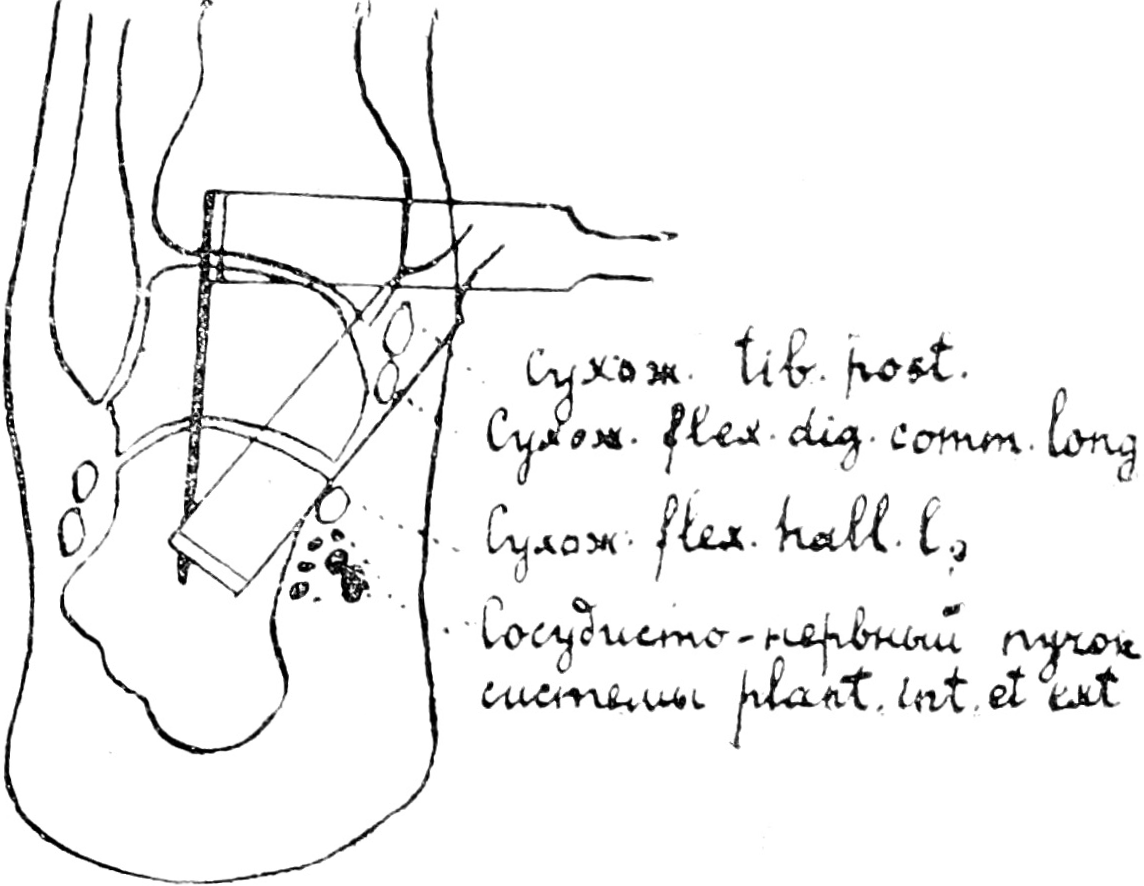 Сухож. tib. post.
Сухож. flex. dig. comm. long
Сухож. flex. hall. l.
Сосудисто-нервный пучок
системы plant. int. et ext